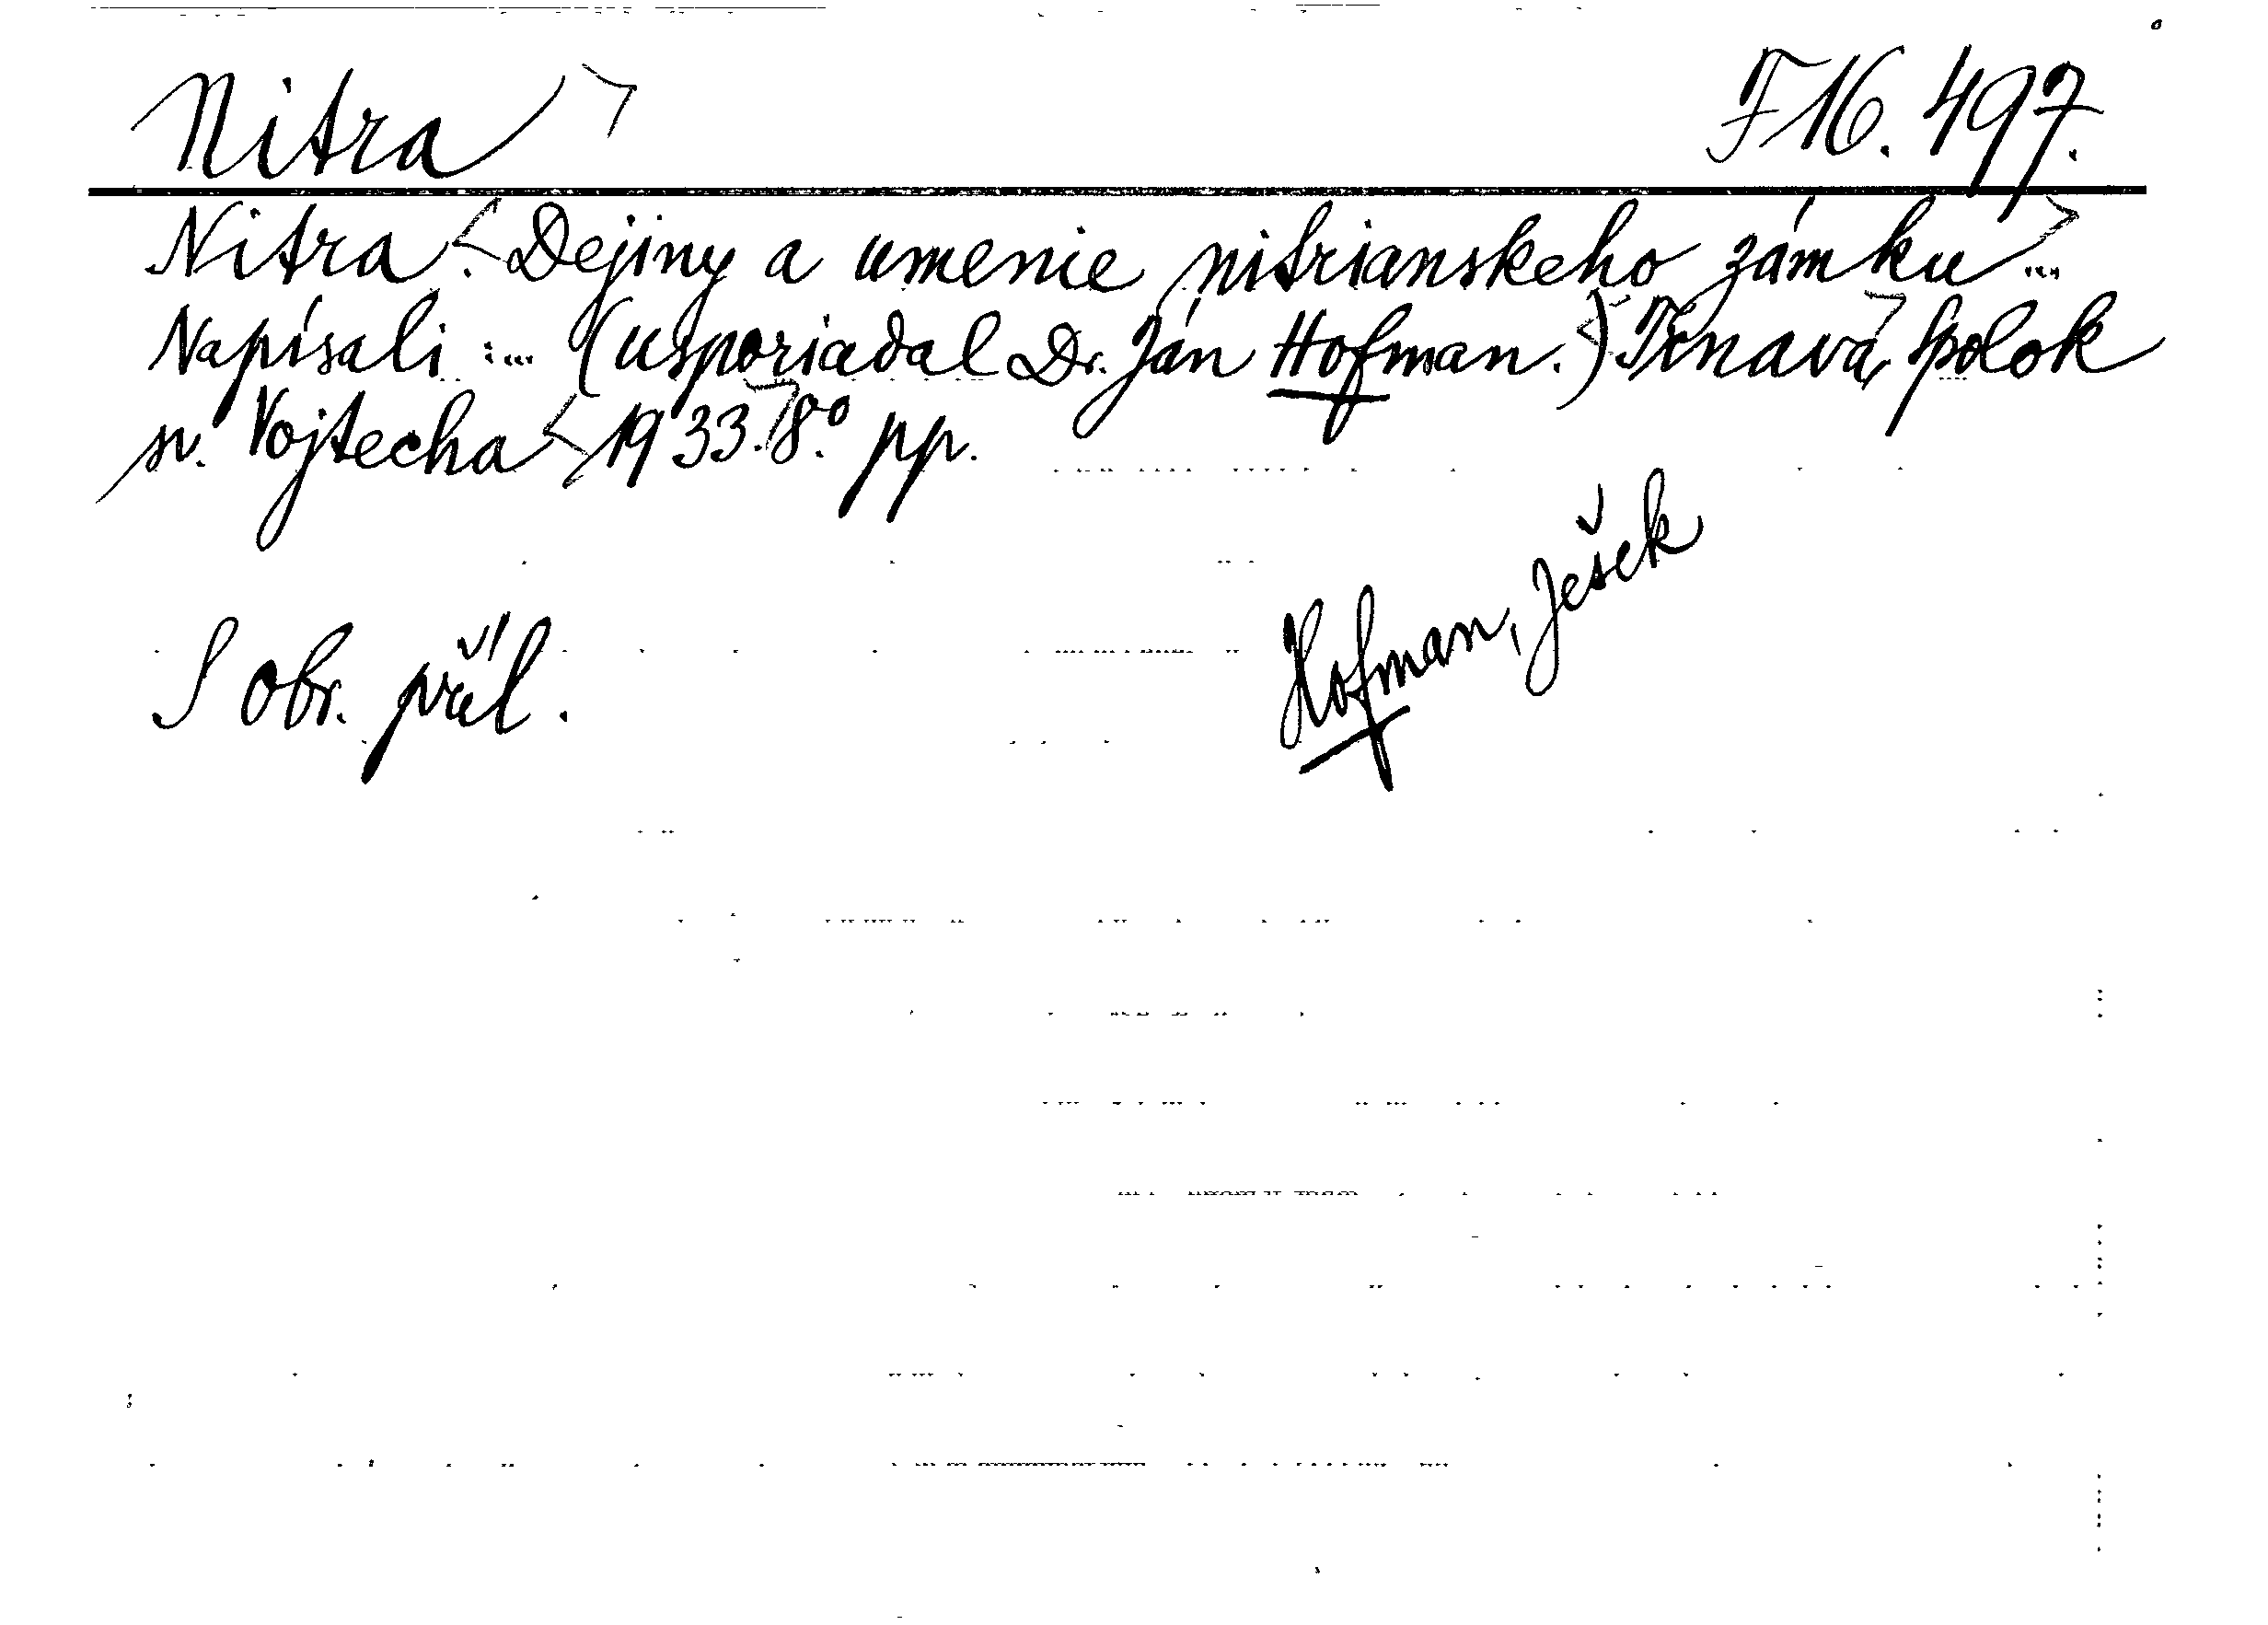 Nitra F 16.497.
Nitra. Dejiny a umenie nitrianskeho zámku ...
Napísali: ... (usporiadal Dr. Ján Hofman.) Trnava, Spolok
sv. Vojtecha 1933. 8.° pp.
Hofman, Ješek
S obr. příl.